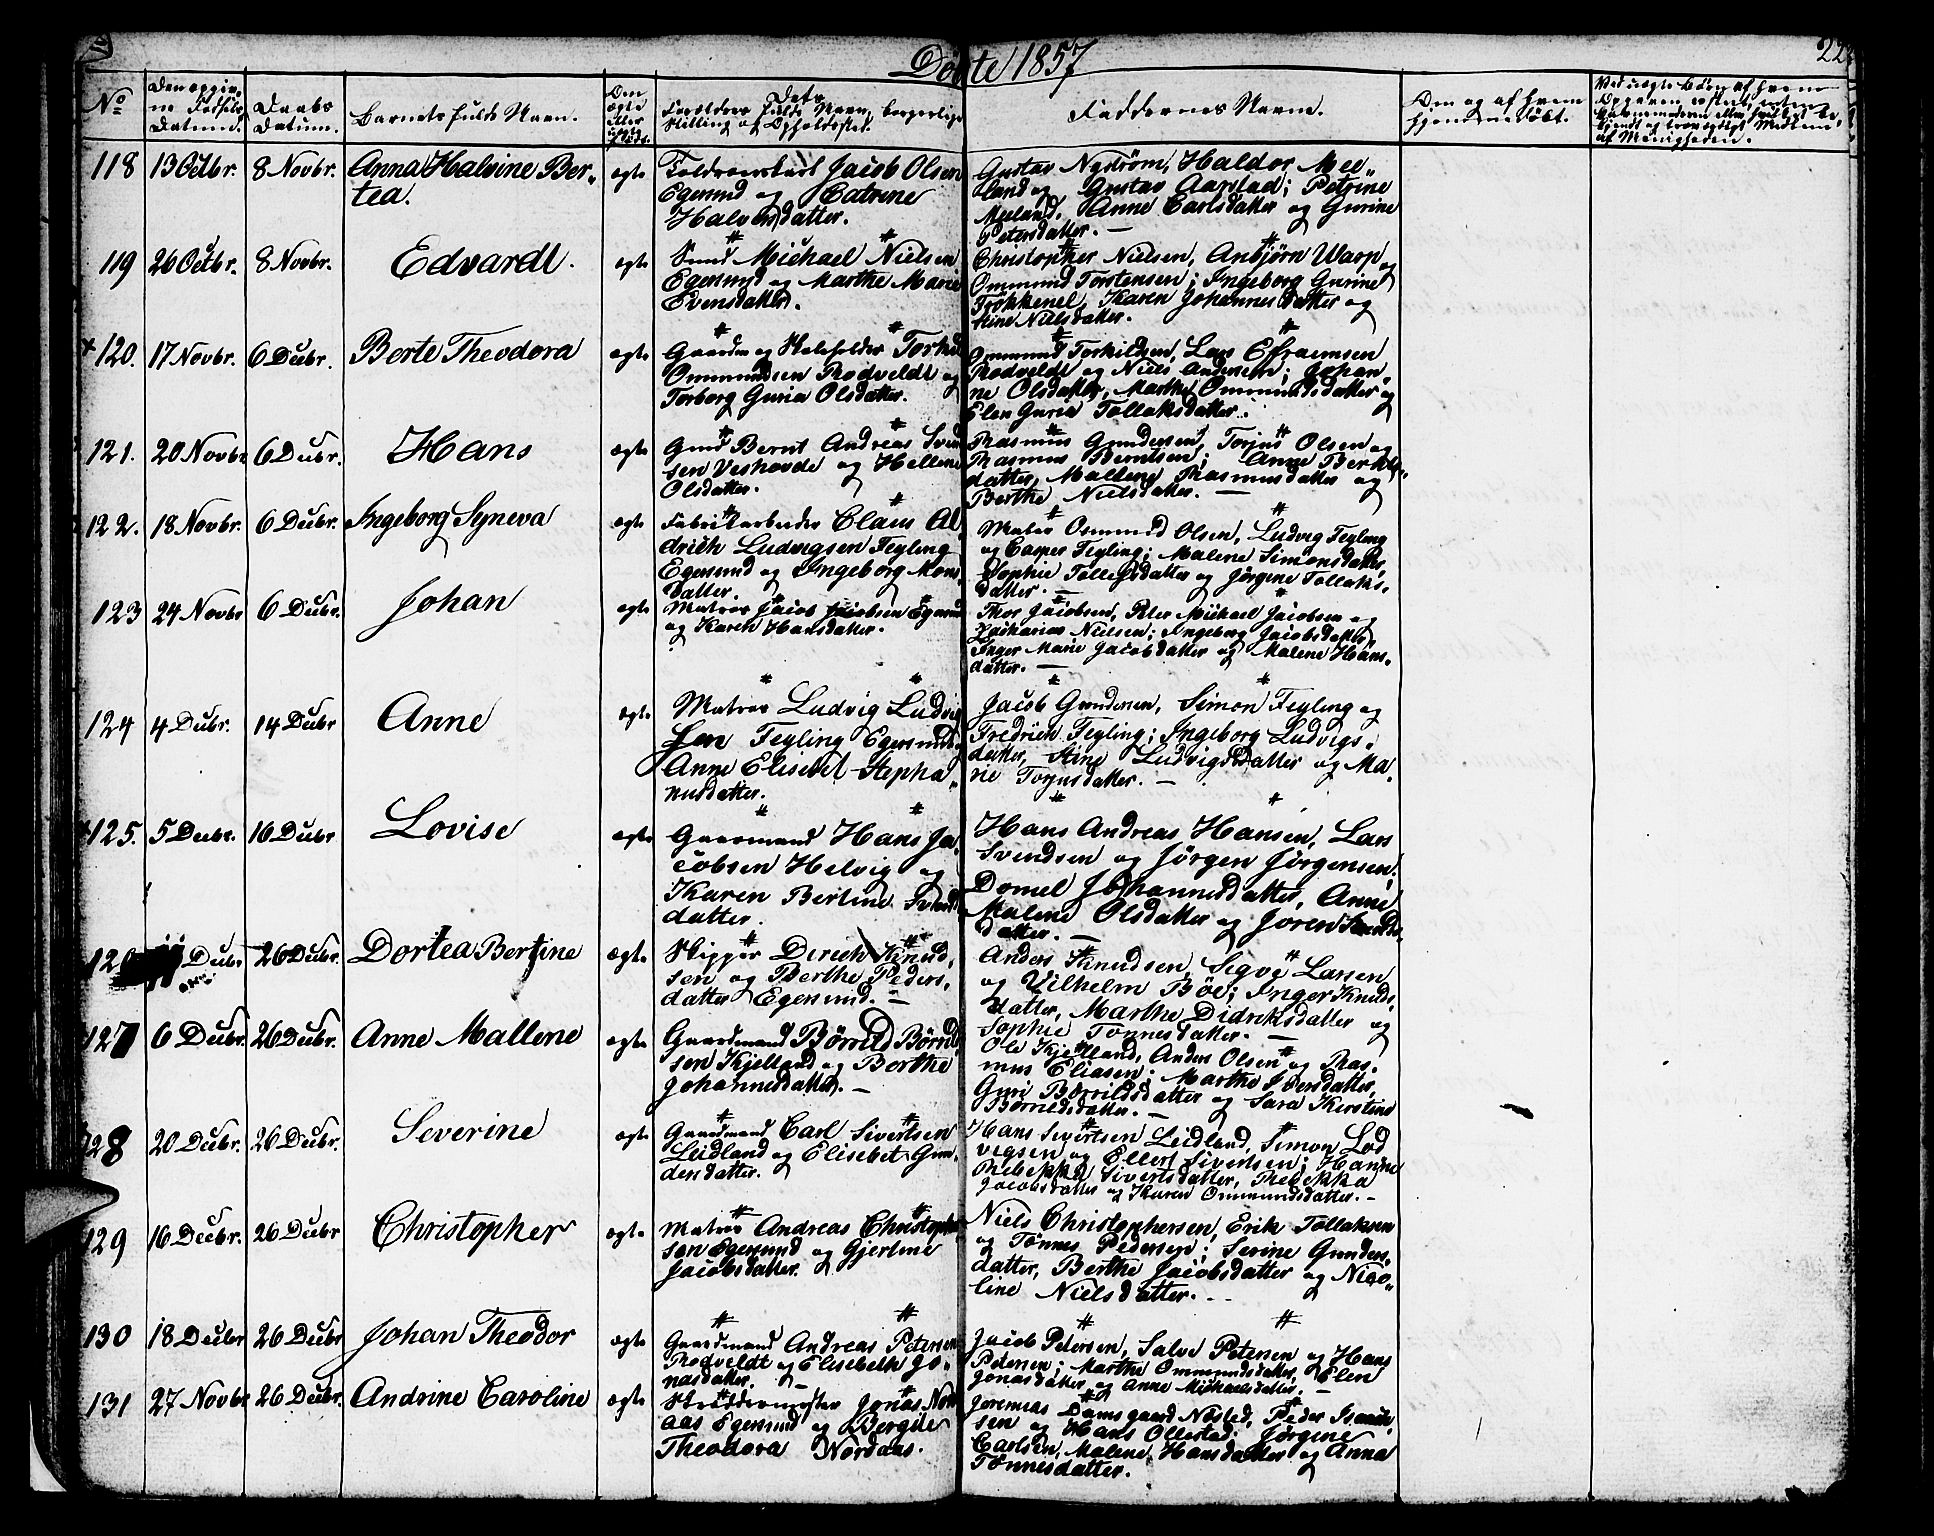 Døbte 1857
No
Den opgivne Fødsels Datum.
Daabs Datum.
Barnets fulde Navn.
Dato
Forældres fulde Navn, borgerlige Stilling og Opholdssted.
Faddernes Navne.
Om og af hvem hjemmedøbt.
118 13 Octbr. 8 Novbr. Anna Halvine Ber-
tea.
ægte
Jacob Olsen
Egersund og Catrine
Halvorsdatter.
Gustav Nystrøm, Haldor Mee-
land og Gustav Aarstad; Petrine
Meeland, Anne Carlsdatter og Gurine
Petersdatter. —
119 26 Octbr. 8 Novbr. Edvardt.
ægte
Smed Michael Nielsen
Egersund og Marthe Marie
Evensdatter.
Christopher Nielsen, Anbjørn Warp og
Ommund Torstensen; Ingeborg Gurine
Karen Johannesdatter og
Stine Nielsdatter.
120. 17 Novbr. 6 Decbr. Berte Theodora
ægte
Gaardm og Skoleholder Torkild
Ommundsen Rodveldt og
Torborg Guria Olsdatter.
Ommund Torkildsen, Lars Efraimsen
Rodveldt og Niels Andersen; Johan-
ne Olsdatter, Marthe Ommundsdatter og
Elen Guria Tollaksdatter.
121. 20 Novbr 6 Decbr. Hans
ægte
Gmd Bernt Andreas Svend
sen Veshovde og Hellene
Olsdatter.
Rasmus Gundersen, Torjus Olsen og
Rasmus Berntsen; Anne Berthe-
datter, Mallene Rasmusdatter og
Berthe Nielsdatter. —
122. 18 Novbr. 6 Decbr. Ingeborg Syneva
ægte
Fabrikarbeider Claus Al
drich Ludvigsen Feyling
Egersund og Ingeborg Mons-
datter.
Matros Ommund Olsen, Ludvig Feyling
og Casper Feyling; Malene Simonsdatter,
Sophie Tollefsdatter og Jørgine Tollaks-
datter. —
123 24 Novbr 6 Decbr. Johan
ægte
Matros Jacob Jacobsen Egersund
og Karen Hansdatter.
Thor Jacobsen, Peter Michael Jacobsen og
Zacharias Nielsen; Ingeborg Jacobsdatter,
Inger Marie Jacobsdatter og Malene Hans-
datter. —
124 4 Decbr. 14 Decbr Anne
ægte
Matros Ludvig Ludvig
sen Feyling Egersund og
Anne Elisebet Stepha-
nusdatter.
Jacob Gundersen, Simon Feyling og
Fredrich Feyling; Ingeborg Ludvigs-
datter, Stine Ludvigsdatter og Ma-
rie Torjusdatter. —
125. 5 Decbr. 16 Decbr Lovise
ægte
Gaardmand Hans Ja-
cobsen Helvig og
Karen Bertine Svends
datter.
Hans Andreas Hansen, Lars
Svendsen og Jørgen Jørgensen;
Domel Johannesdatter, Anne
Malene Olsdatter og Joren Svends-
datter. —
126 Decbr 26 Decbr. Dortea Bertine
ægte
Skipper Derich Knud-
sen og Berthe Peders-
datter Egersund. —
Anders Knudsen, Sigve Larsen
og Vilhelm Böe; Inger Knuds-
datter, Marthe Didriksdatter og
Sophie Tönnesdatter. —
127 6 Decbr. 26 Decbr. Anne Mallene
ægte
Gaardmand Börrild Börrild
sen Kjelland og Berthe
Johannesdatter. —
Ole Kjelland, Anders Olsen og Ras-
mus Eliasen; Marthe Iversdatter,
Guri Börrildsdatter og Sara Kirstine
Börrildsdatter. —
128 20 Decbr. 26 Decbr. Severine
ægte
Gaardmand Carl Sivertsen
Leidland og Elisebet Gun-
dersdatter.
Hans Sivertsen Leidland, Simon Lod
vigsen og Ellert Sivertsen; Hanne
Rebekka Sivertsdatter, Rebekka
Jacobsdatter og Karen Ommundsdatter. —
129 16 Decbr. 26 Decbr Christopher
ægte
Matros Andreas Christopher
sen Egersund og Gjertine
Jacobsdatter.
Niels Christophersen, Erik Tollaksen
og Tönnes Pedersen; Serine Gunders-
datter, Berthe Jacobsdatter og Nico-
line Nielsdatter. —
130 18 Decbr 26 Decbr Johan Theodor
ægte
Gaardmand Andreas Petersen
Rodveldt og Elisebeth Jo-
nasdatter. —
Jacob Petersen, Salve Petersen og Hans
Petersen; Marthe Ommundsdatter, Elen
Jonasdatter og Anne Michaelsdatter. —
131 27 Novbr 26 Decbr. Andrine Caroline
ægte
Skræddermester Jonas Nord
aas Egersund og Bergite
Theodora Nordaas.
Jeremias Damsgaard Næsted, Peder Isaak-
sen og Hans Ollestad; Jørgine
Carlsen, Malene Hansdatter og Anna
Tönnesdatter.